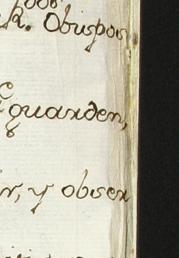 R. Obispos
guarden,
r, y obser